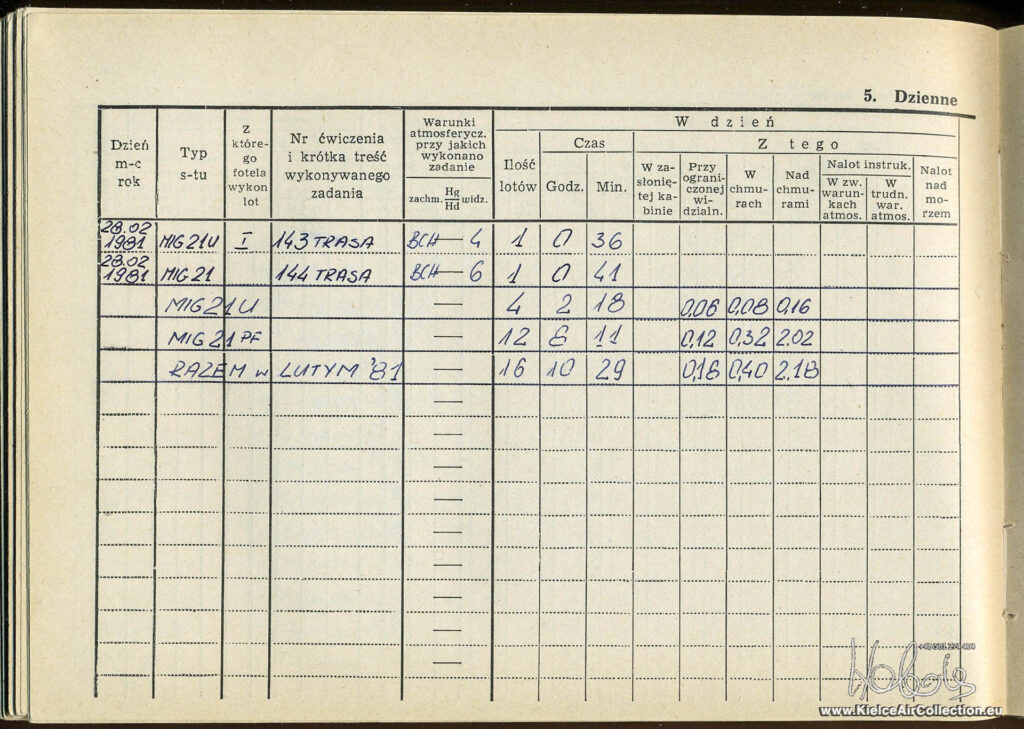 5. Dzienne
Dzień
m-c
rok
Typ
s-tu
Z
które-
go
fotela
wykon
lot
Nr ćwiczenia
i krótka treść
wykonywanego
zadania
Warunki
atmosferycz.
przy jakich
wykonano
zadanie
zachm. Hg/Hd widz.
W dzień
Ilość
lotów
Czas
Godz.
Min.
Z tego
W za-
słonię-
tej ka-
binie
Przy
ograni-
czonej
wi-
dzialn.
W
chmu-
rach
Nad
chmu-
rami
Nalot instruk.
W zw.
warun-
kach
atmos.
W
trudn.
war.
atmos.
Nalot
nad
mo-
rzem
28.02
1981 MIG 21U I 143 TRASA BCH — 4 1 0 36
28.02
1981 MIG 21 144 TRASA BCH — 6 1 0 41
MIG 21U — 4 2 18 0,06 0,08 0,16
MIG 21 PF — 12 8 11 0,12 0,32 2.02
RAZEM w LUTYM '81 — 16 10 29 0,18 0,40 2.18
www.KielceAirCollection.eu